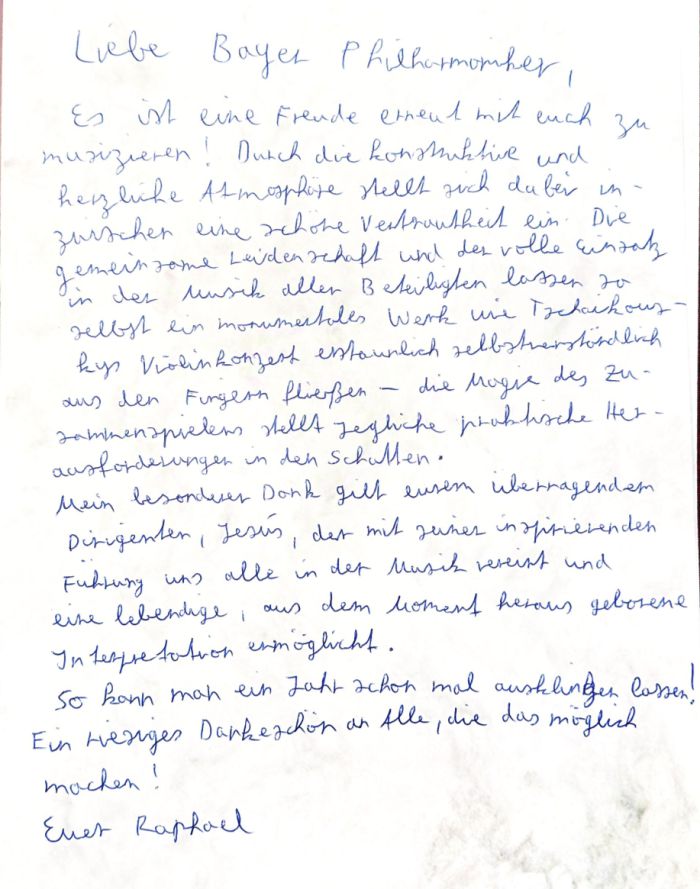 Liebe Bayer Philharmoniker,
Es ist eine Freude erneut mit euch zu
musizieren! Durch die konstruktive und
herzliche Atmosphäre stellt sich dabei in-
zwischen eine schöne Vertrautheit ein. Die
gemeinsame Leidenschaft und der volle Einsatz
in der Musik aller Beteiligten lassen so
selbst ein monumentales Werk wie Tschaikows-
kys Violinkonzert erstaunlich selbstverständlich
aus den Fingern fließen – die Magie des Zu-
sammenspielens stellt jegliche praktische Her-
ausforderungen in den Schatten.
Mein besonderer Dank gilt eurem überragendem
Dirigenten, Jesús, der mit seiner inspirierenden
Führung uns alle in der Musik vereint und
eine lebendige, aus dem Moment heraus geborene
Interpretation ermöglicht.
So kann man ein Jahr schon mal ausklingen lassen!
Ein riesiges Dankeschön an Alle, die das möglich
machen!
Euer Raphael